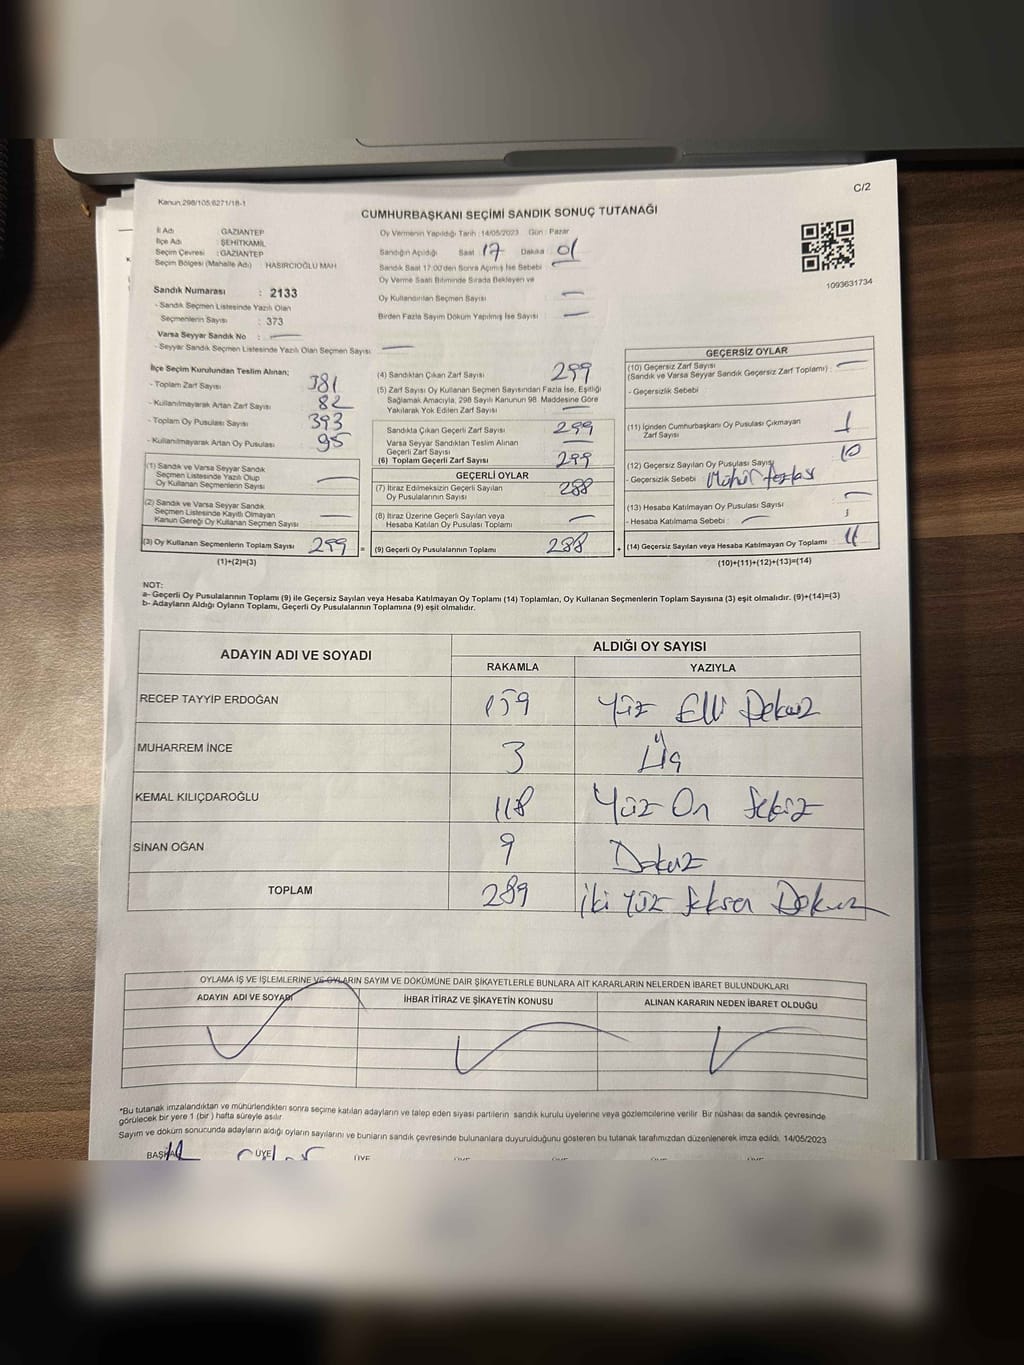 C/2
Kanun:298/105;6271/18-1
CUMHURBAŞKANI SEÇİMİ SANDIK SONUÇ TUTANAĞI
İl Adı : GAZİANTEP
İlçe Adı : ŞEHİTKAMİL
Seçim Çevresi : GAZİANTEP
Seçim Bölgesi (Mahalle Adı) : HASIRCIOĞLU MAH
Sandık Numarası : 2133
- Sandık Seçmen Listesinde Yazılı Olan
Seçmenlerin Sayısı : 373
Varsa Seyyar Sandık No : —
- Seyyar Sandık Seçmen Listesinde Yazılı Olan Seçmen Sayısı : —
Oy Vermenin Yapıldığı Tarih :14/05/2023 Gün : Pazar
Sandığın Açıldığı Saat 17 Dakika 01
Sandık Saat 17:00'den Sonra Açılmış İse Sebebi —
Oy Verme Saati Bitiminde Sırada Bekleyen ve
Oy Kullandırılan Seçmen Sayısı —
Birden Fazla Sayım Döküm Yapılmış İse Sayısı —
1093631734
İlçe Seçim Kurulundan Teslim Alınan;
- Toplam Zarf Sayısı : 381
- Kullanılmayarak Artan Zarf Sayısı : 82
- Toplam Oy Pusulası Sayısı : 393
- Kullanılmayarak Artan Oy Pusulası : 95
(1) Sandık ve Varsa Seyyar Sandık
Seçmen Listesinde Yazılı Olup
Oy Kullanan Seçmenlerin Sayısı —
(2) Sandık ve Varsa Seyyar Sandık
Seçmen Listesinde Kayıtlı Olmayan
Kanun Gereği Oy Kullanan Seçmen Sayısı —
(3) Oy Kullanan Seçmenlerin Toplam Sayısı 299
(1)+(2)=(3)
(4) Sandıktan Çıkan Zarf Sayısı 299
(5) Zarf Sayısı Oy Kullanan Seçmen Sayısından Fazla İse, Eşitliği
Sağlamak Amacıyla, 298 Sayılı Kanunun 98. Maddesine Göre
Yakılarak Yok Edilen Zarf Sayısı —
Sandıkta Çıkan Geçerli Zarf Sayısı 299
Varsa Seyyar Sandıktan Teslim Alınan
Geçerli Zarf Sayısı —
(6) Toplam Geçerli Zarf Sayısı 299
GEÇERLİ OYLAR
(7) İtiraz Edilmeksizin Geçerli Sayılan
Oy Pusulalarının Sayısı 288
(8) İtiraz Üzerine Geçerli Sayılan veya
Hesaba Katılan Oy Pusulası Toplamı —
= (9) Geçerli Oy Pusulalarının Toplamı 288
GEÇERSİZ OYLAR
(10) Geçersiz Zarf Sayısı —
(Sandık ve Varsa Seyyar Sandık Geçersiz Zarf Toplamı) :
- Geçersizlik Sebebi
(11) İçinden Cumhurbaşkanı Oy Pusulası Çıkmayan
Zarf Sayısı 1
(12) Geçersiz Sayılan Oy Pusulası Sayısı 10
- Geçersizlik Sebebi Mühür fazlası
(13) Hesaba Katılmayan Oy Pusulası Sayısı : —
- Hesaba Katılmama Sebebi : —
+ (14) Geçersiz Sayılan veya Hesaba Katılmayan Oy Toplamı 11
(10)+(11)+(12)+(13)=(14)
NOT:
a- Geçerli Oy Pusulalarının Toplamı (9) ile Geçersiz Sayılan veya Hesaba Katılmayan Oy Toplamı (14) Toplamları, Oy Kullanan Seçmenlerin Toplam Sayısına (3) eşit olmalıdır. (9)+(14)=(3)
b- Adayların Aldığı Oyların Toplamı, Geçerli Oy Pusulalarının Toplamına (9) eşit olmalıdır.
ADAYIN ADI VE SOYADI ALDIĞI OY SAYISI
RAKAMLA YAZIYLA
RECEP TAYYİP ERDOĞAN 159 Yüz Elli Dokuz
MUHARREM İNCE 3 Üç
KEMAL KILIÇDAROĞLU 118 Yüz On Sekiz
SİNAN OĞAN 9 Dokuz
TOPLAM 289 İki Yüz Seksen Dokuz
OYLAMA İŞ VE İŞLEMLERİNE VE OYLARIN SAYIM VE DÖKÜMÜNE DAİR ŞİKAYETLERLE BUNLARA AİT KARARLARIN NELERDEN İBARET BULUNDUKLARI
ADAYIN ADI VE SOYADI İHBAR İTİRAZ VE ŞİKAYETİN KONUSU ALINAN KARARIN NEDEN İBARET OLDUĞU
*Bu tutanak imzalandıktan ve mühürlendikten sonra seçime katılan adayların ve talep eden siyasi partilerin sandık kurulu üyelerine veya gözlemcilerine verilir. Bir nüshası da sandık çevresinde
görülecek bir yere 1 (bir ) hafta süreyle asılır.
Sayım ve döküm sonucunda adayların aldığı oyların sayılarını ve bunların sandık çevresinde bulunanlara duyurulduğunu gösteren bu tutanak tarafımızdan düzenlenerek imza edildi. 14/05/2023
BAŞKAN ÜYE ÜYE ÜYE ÜYE ÜYE ÜYE